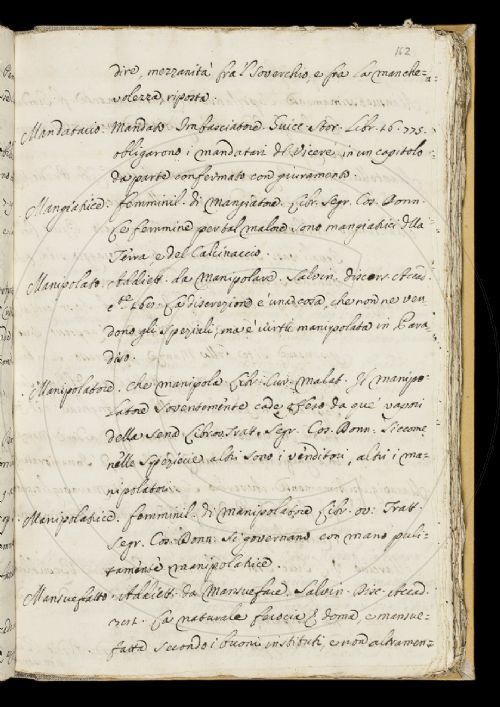 162
dire, mezzanità fra 'l soverchio, e fra la manche-
volezza, riposta
Mandatario. Mandato Imbasciatore. Guicc. Stor. Libr. 16. 775.
obligarono i mandatari del Vicere, in un capitolo
da parte confermato con giuramento
Mangiatrice. femminil. di Mangiatore. Libr. Segr. Cos. Donn.
Le femmine per tal malore sono mangiatrici della
Terra, e del Calcinaccio.
Manipolato. Addiett. da Manipolare. Salvin. discors. Accad.
La discrezione è una cosa, che non ne ven
dono gli Speziali, ma è virtù manipolata in Para
diso.
Manipolatore. che manipola Libr. Cur. Malat. Il manipo
latore soventemente cade offeso da que' vapori
della Sena Libr. ov. Tratt. Segr. Cos. Donn. Siccome
nelle Spezierie altri sono i venditori, altri i ma-
nipolatori.
Manipolatrice. femminil. di manipolatore Libr. ov. Tratt.
Segr. Cos. Donn. Si governano con mano puli-
tamente manipolatrice.
Mansuefatto. Addiett. da Mansuefare. Salvin. Disc. Accad.
La naturale ferocia è doma, e mansue-
fatta secondo i buoni instituti, e non altramen